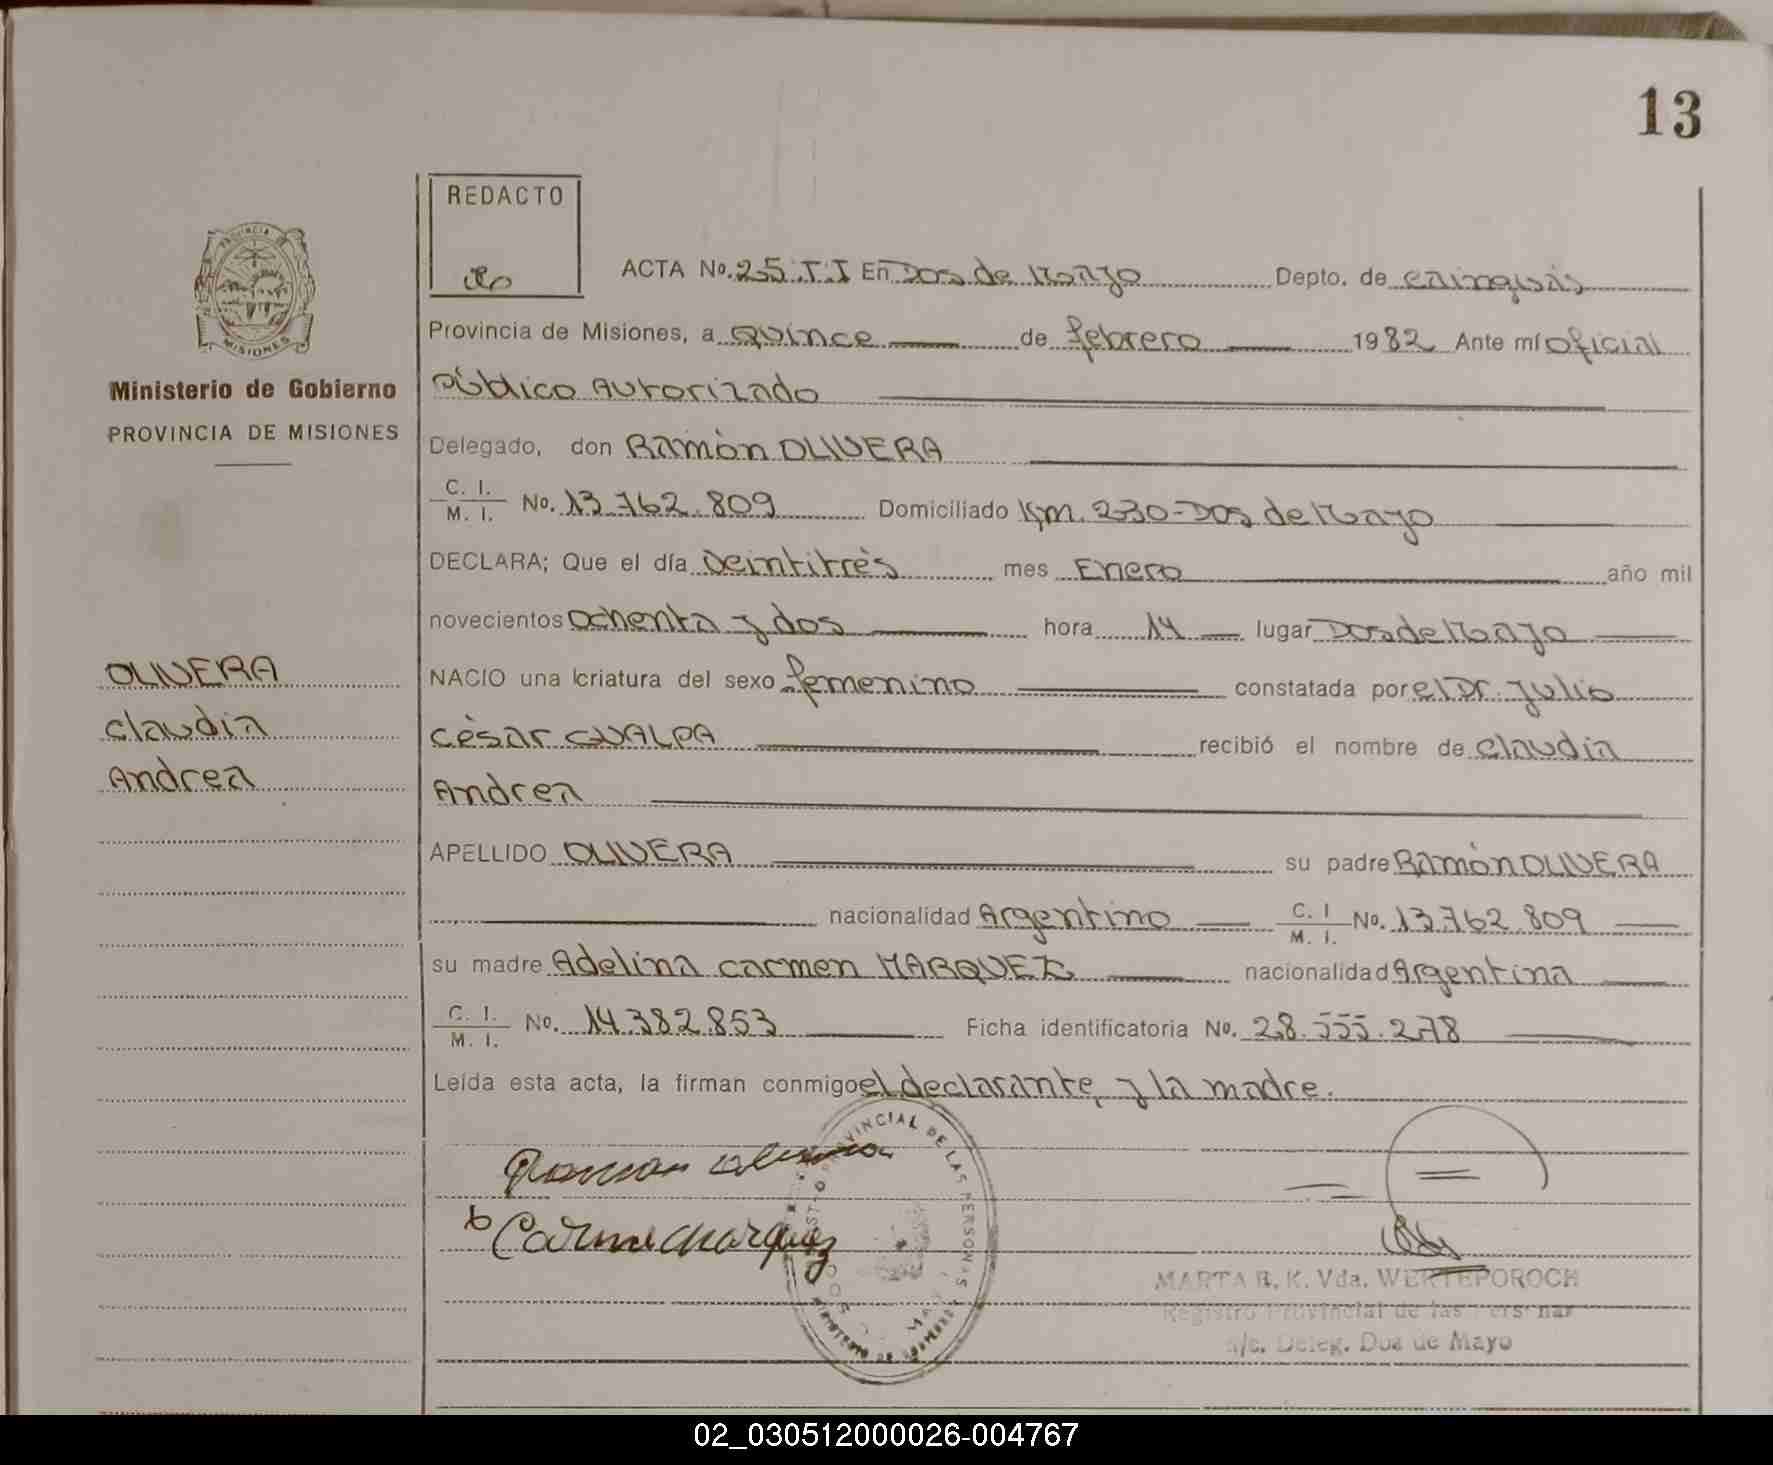 13
REDACTO
ACTA No. 25.T.I En Dos de Mayo Depto. de Cainguás
Provincia de Misiones, a Quince de febrero 1982 Ante mí oficial
Público Autorizado
Ministerio de Gobierno
PROVINCIA DE MISIONES
Delegado, don Ramón OLIVERA
C. I.
M. I. No. 13.762.809 Domiciliado Km. 230-Dos de Mayo
DECLARA; Que el día Veintitrés mes Enero año mil
novecientos ochenta y dos hora 14 lugar Dos de Mayo
OLIVERA
Claudia
Andrea
NACIO una criatura del sexo femenino constatada por el Dr. Julio
César GUALPA recibió el nombre de Claudia
Andrea
APELLIDO OLIVERA su padre Ramón OLIVERA
nacionalidad Argentino C. I M. I. No. 13.762.809
su madre Adelina Carmen MARQUEZ nacionalidad Argentina
C. I.
M. I. No. 14.382.853 Ficha identificatoria No. 28.555.278
Leída esta acta, la firman conmigo el declarante, y la madre.
Ramon Olivera
Carmen Marquez
PROVINCIAL DE LAS PERSONAS
MARTA R. K. Vda. WERTEPOROCH
Registro Provincial de las Personas
a/c. Deleg. Dos de Mayo
02_030512000026-004767